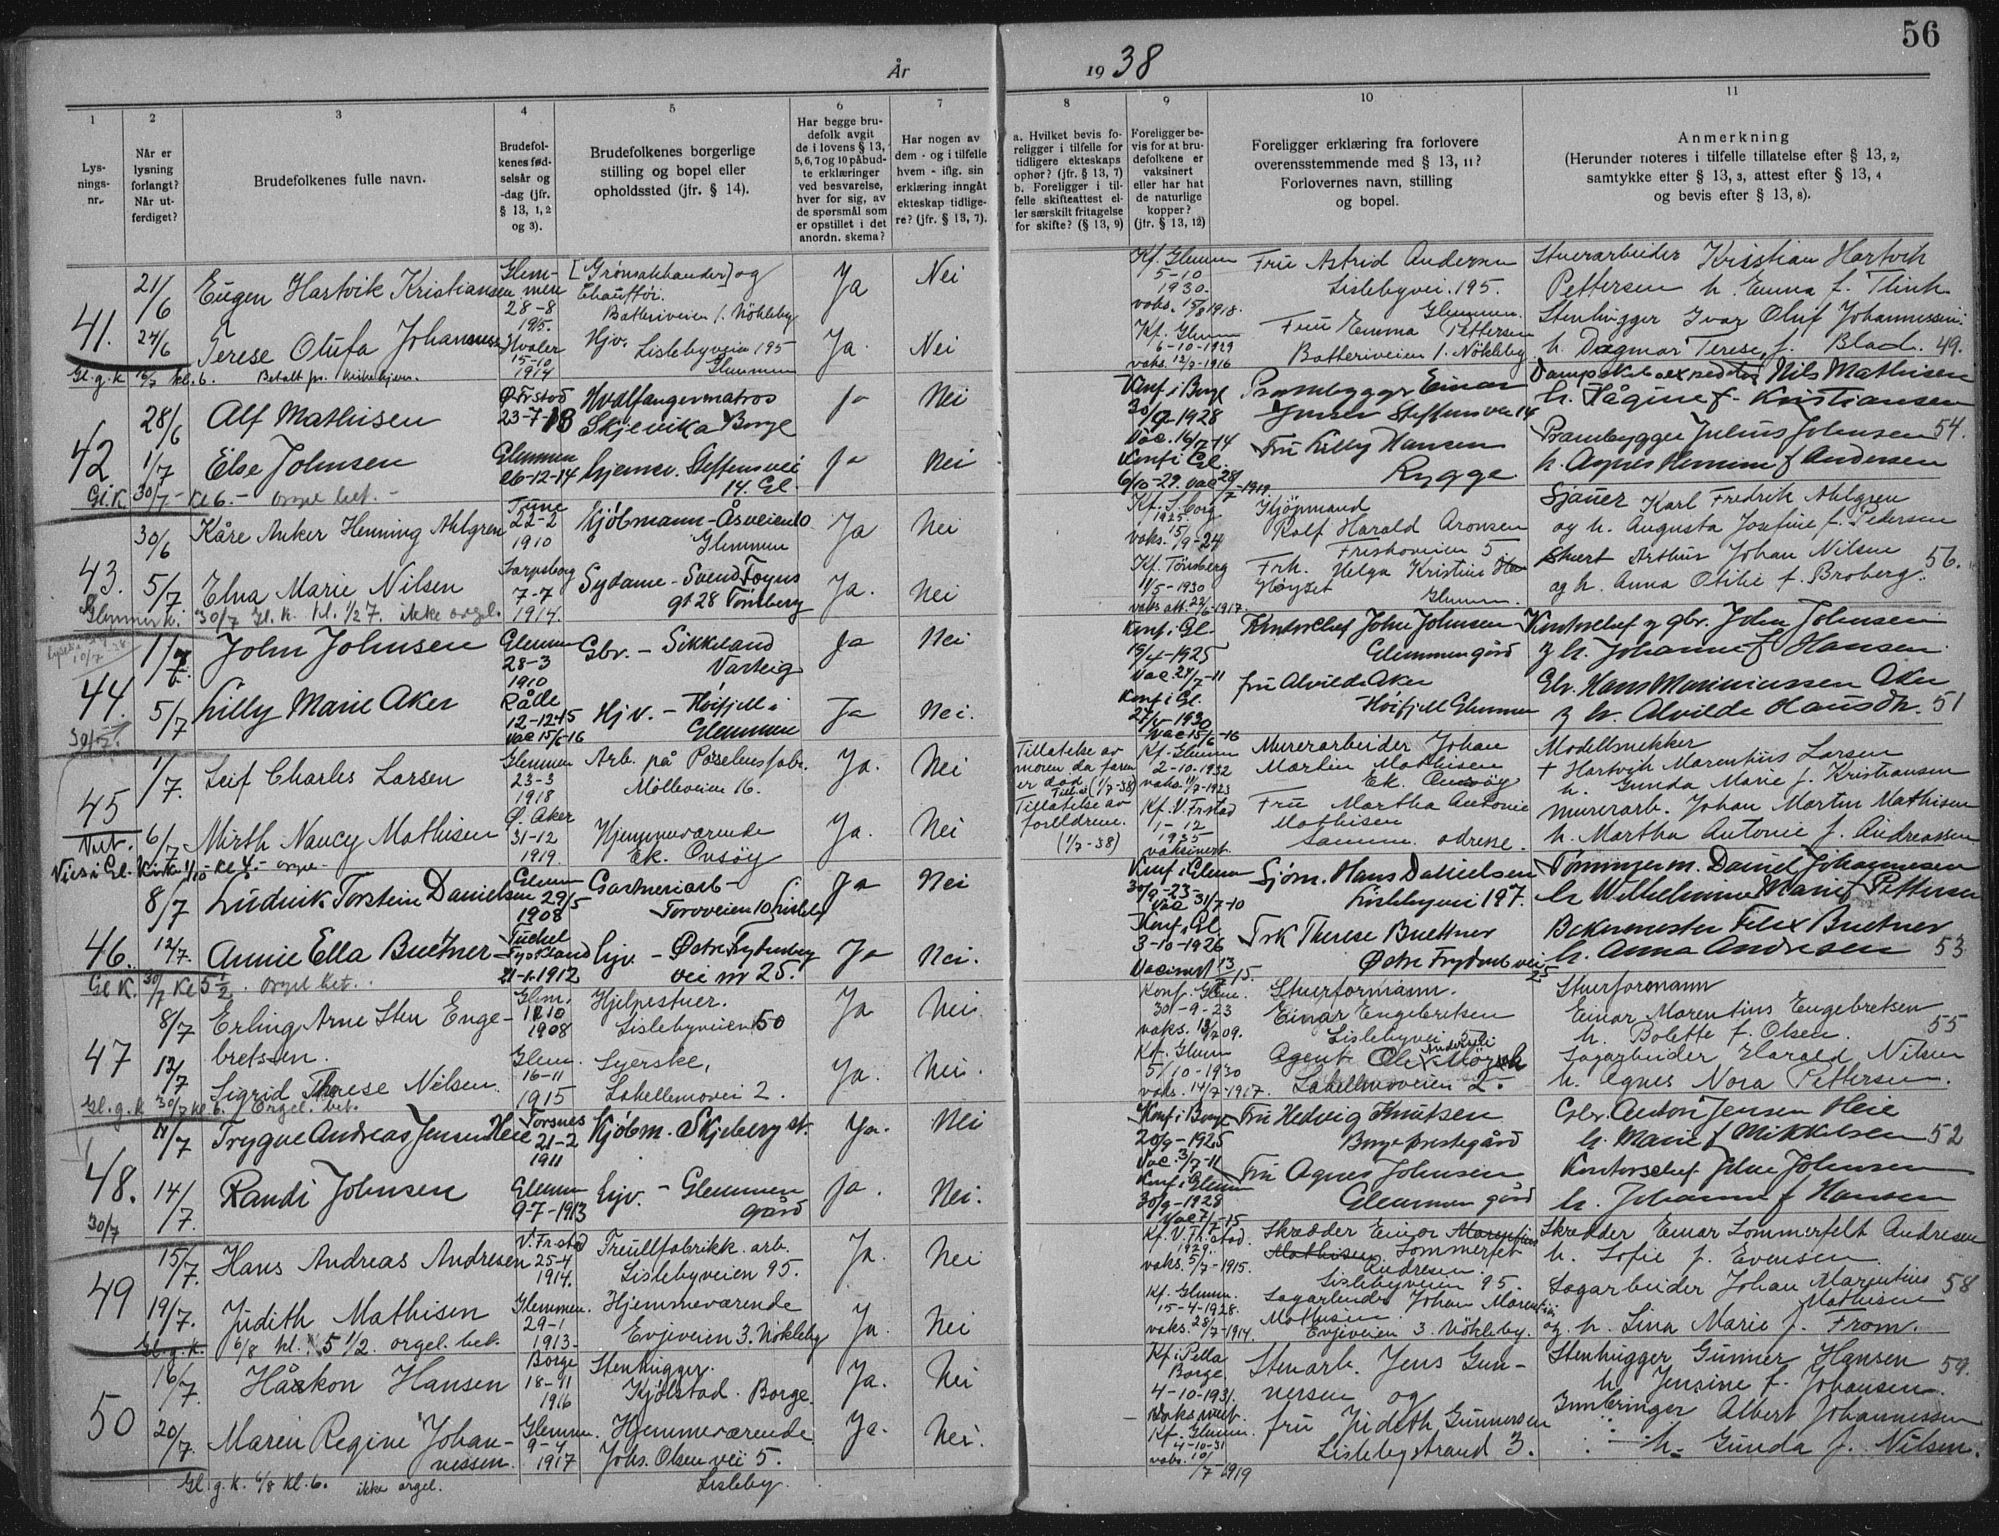 56
År 1938
1
2
3
4
5
6
7
8
9
10
11
Lys-
nings-
nr.
Når er
lysning
forlangt?
Når ut-
ferdiget?
Brudefolkenes fulle navn.
Brudefol-
kenes fød-
selsår og
-dag (jfr.
§ 13, 1, 2
og 3).
Brudefolkenes borgerlige
stilling og bopel eller
opholdssted (jfr. § 14).
Har begge bru-
defolk avgit
de i lovens § 13,
5, 6, 7 og 10 påbud-
te erklæringer
ved besvarelse,
hver for sig, av
de spørsmål som
er opstillet i det
anordn. skema?
Har nogen av
dem - og i tilfelle
hvem - iflg. sin
erklæring inngått
ekteskap tidlige-
re? (jfr. § 13, 7).
a. Hvilket bevis fo-
religger i tilfelle for
tidligere ekteskaps
ophør? (jfr. § 13, 7)
b. Foreligger i til-
felle skifteattest el-
ler særskilt fritagelse
for skifte? (§ 13, 9)
Foreligger be-
vis for at bru-
defolkene er
vaksinert
eller har hat
de naturlige
kopper?
(jfr. § 13, 12)
Foreligger erklæring fra forlovere
overensstemmende med § 13, 11?
Forlovernes navn, stilling
og bopel.
Anmerkning
(Herunder noteres i tilfelle tillatelse efter § 13, 2,
samtykke efter § 13, 3, attest efter § 13, 4
og bevis efter § 13, 8).
41.
21/6
Eugen Hartvik Kristiansen
Glem-
men
28-8
1915.
[Grønsakhandler] og
Chauffør.
Batteriveien 1. Nökleby
Ja
Nei
Kf. Glemm
5-10
1930.
vaks. 15/8 1918.
Fru Astrid Andersen
Lislebyvei 195.
Glemmen.
Stuerarbeider Kristian Hartvik
Pettersen h. Emma f. Flink
27/6
Terese Olufa Johannessen
Hvaler
15-10
1914
Hjv. Lislebyveien 195
Glemmen
Ja.
Nei
Kf. Glemm
6-10-1929
vaks. 12/7-1916
Fru Emma Pettersen
Batteriveien 1. Nökleby
Stenhugger Ivar Oluf Johannessen.
h. Dagmar Terese f. Blad. 49.
Gl. g. k. 16/7 kl. 6. Betalt pr. kirketjen.
42
28/6
Alf Mathisen
Ø. Frstad
23-7-13
Hvalfangermatros
Skjevika Borge
Ja
Nei
Konf i Borge
30/9-1928
Vac. 16/7-14
Prambygger Einar
Jensen Steffensvei 14
Dampskibsexpeditør Nils Mathisen
h. Hågine f. Kristiansen
1/7
Else Johnsen
Glemmen
26-12-14
hjemmev. Steffensvei
14. Gl.
Ja
Nei
Konf i Gl.
6/10-29. vac 28/7-1919
Fru Lilly Hansen
Rygge
Prambygger Julius Johnsen 54.
h. Agnes Hermine f Andersen
Gl. K. 30/7 - Kl 6. - orgel bet. -
43.
30/6
Kåre Anker Henning Ahlgren
Tune
22-2
1910
Kjøbmann - Åsveien 10
Glemmen
Ja
Nei
Kf. S. borg
1925.
vaks. 15/9-24
Kjöpmand
Rolf Harald Aronsen
Friskoveien 5
Sjauer Karl Fredrik Ahlgren
og h. Augusta Josefine f. Pedersen
5/7
Elna Marie Nilsen
Sarpsborg
7-7
1914.
Sydame - Svend Foyns
gt 28 Tönsberg
Ja.
Nei
Kf. Tönsberg
11/5-1930
vaks att. 22/6-1917.
Frk. Helga Kristine
Høyset
Glemmen.
Skuert Arthur Johan Nilsen
og h. Anna Otilie f. Broberg. 56.
Glemmen k. 30/7 Gl. k. kl. 1/2 7. ikke orgel.
44.
1/7.
John Johnsen
Glemmen
28-3
1910
Gbr. - Sikkeland
Varteig
Ja
Nei
Konf i Gl.
19/4-1925
Vac. 24/7-11
Kontorchef John Johnsen
Glemmengård
Kontorchef og gbr. John Johnsen
og h. Johanne f Hansen.
5/7
Lilly Marie Aker
Råde
12-12-15
vac 15/6-16
Hjv. - Høifjell i
Glemmen
Ja
Nei.
Konf i Gl.
27/4-1930
vac 15/6-16
fru Alvilde Aker
Høifjell Glemmen
Gbr. Hans Marinussen Aker
og h. Alvilde Hansdtr. 51
30/7
45
1/7.
Leif Charles Larsen
Glemmen
23-3
1918
Arb. på Porselensfabr.
Mölleveien 16.
Ja.
Nei
Tillatelse av
moren da faren
er död (1/7-38)
Kf. Glemm
2-10-1932
vaks. 11/7-1923
Murerarbeider Johan
Martin Mathisen
Ek. Onsöy
Modellsnekker
+ Hartvik Marentius Larsen
h. Gunda Marie f. Kristiansen
6/7
Mirth Nancy Mathisen
Ø. Aker
31-12
1919.
Hjemmeværende
Ek. Onsöy
Ja.
Nei
Tillatelse av
foreldrene.
(1/7-38)
Kf. V. Frstad
1-12
1935
vaksinert
Fru Martha Antonie
Mathisen
Samme adresse.
murerarb. Johan Martin Mathisen
h. Martha Antonie f. Andreassen
Vies i Gl. Kirke 1/10 - Kl 4. - orgel
46.
8/7
Ludvik Torstein Danielsen
Glemm
29/5
1908
Gartneriarb -
Torvveien 10 Lisleby
Ja
Nei
Konf i Glemm
30/9-23
vac 31/7-10
Sjøm. Hans Danielsen
Lislebyvei 197.
Tømmerm. Daniel Johannesen
h Wilhelmine Marie f Pettersen
12/7.
Annie Ella Buettner
Tyskland
21-1-1912
hjv. - Østre Frydenberg
vei nr 25.
Ja
Nei.
Konf. i Gl.
3-10-1926
Vacinert 13/7-15
Frk Therese Buettner
Østre Frydenb vei 25
Bakermester Felix Buettner
h. Anna Andresen 53
Gl K. 30/7 Kl 5 1/2. orgel bet.
47
8/7
Erling Arne Sten Enge-
bretsen.
Glem.
1908
Hjelpestuer.
Lislebyveien 50
Ja
Nei.
Konf. Glem.
30-9-23
vaks. 13/7 09.
Stuerformann.
Einar Engebretsen
Lislebyvei 50
Stuerformann
Einar Marentius Engebretsen
h. Bolette f. Olsen. 55
12/7
Sigrid Therese Nilsen.
Glem.
16-11
1915
Syerske,
Lahellemovei 2.
Ja.
Nei.
Kf. Glemm
5/10-1930
vaks. 14/7-1917.
Agent Ole Mörch
Lahellemoveien 2.
Sagarbeider Harald Nilsen
h. Agnes Nora Pettersen.
Gl. g. k 30/7 kl. 6. Orgel. bet.
48.
11/7
Trygve Andreas Jensen Heie
Torsnes
21-2
1911
Kjøbm. Skjeberg st.
Ja.
Nei
Konf i Borge
20/9-1925
Vac. 3/7-11
Fru Hedvig Knutsen
Borge prestegård
Gbr Anton Jensen Heie
h. Marie f Mikkelsen 52
14/7.
Randi Johnsen
Glemm
9-7-1913
hjv. - Glemmen
gård
Ja.
Nei.
Konf i Glemm
30/9-1928
Vac 7/7-15
Fru Agnes Johnsen
Glemmen gård
Kontorchef John Johnsen
h. Johanne f Hansen
30/7
49
15/7.
Hans Andreas Andresen
V. Frstad
25-4
1914.
Treullfabrikk. arb.
Lislebyveien 95.
Ja.
Nei
1929.
vaks. 5/7-1915.
Skrædder Einar
Sommerfelt
Andresen.
Lislebyveien 95.
Skrædder Einar Sommerfelt Andresen
h. Sofie f. Evensen.
19/7.
Judith Mathisen
Glemmen.
29-1
1913.
Hjemmeværende
Evjeveien 3. Nökleby
Ja.
Nei
Kf. Glemm.
15-4-1928.
vaks. 28/7-1914.
Sagarbeider Johan Marentius
Mathisen
Evjeveien 3. Nökleby.
Sagarbeider Johan Marentius 58
Mathisen
og h. Lina Marie f. From.
Gl. g. k. 6/8 kl. 5 1/2. orgel. bet.
50
16/7
Håkon Hansen
Borge
18-11
1916
Stenhugger.
Kjölstad. Borge.
Ja.
Nei
Kf. i Pella
Borge
4-10-1931.
Vaksinert.
Stenarb. Jens Gun-
nersen og
Stenhugger Gunner Hansen 59.
h. Jensine f. Johansen.
20/7.
Maren Regine Johan-
nessen.
Glemm.
9-4
1917
Hjemmeværende
Johs. Olsen vei 5.
Lisleby.
Ja.
Nei.
Kf. Glemm.
4-10-31
vaks. 10/7-1919
fru Judith Gunnersen
Lislebystrand 3.
Albert Johannessen
h. Gunda f. Nilsen.
Gl. g. k. 6/8 kl. 6. ikke orgel.